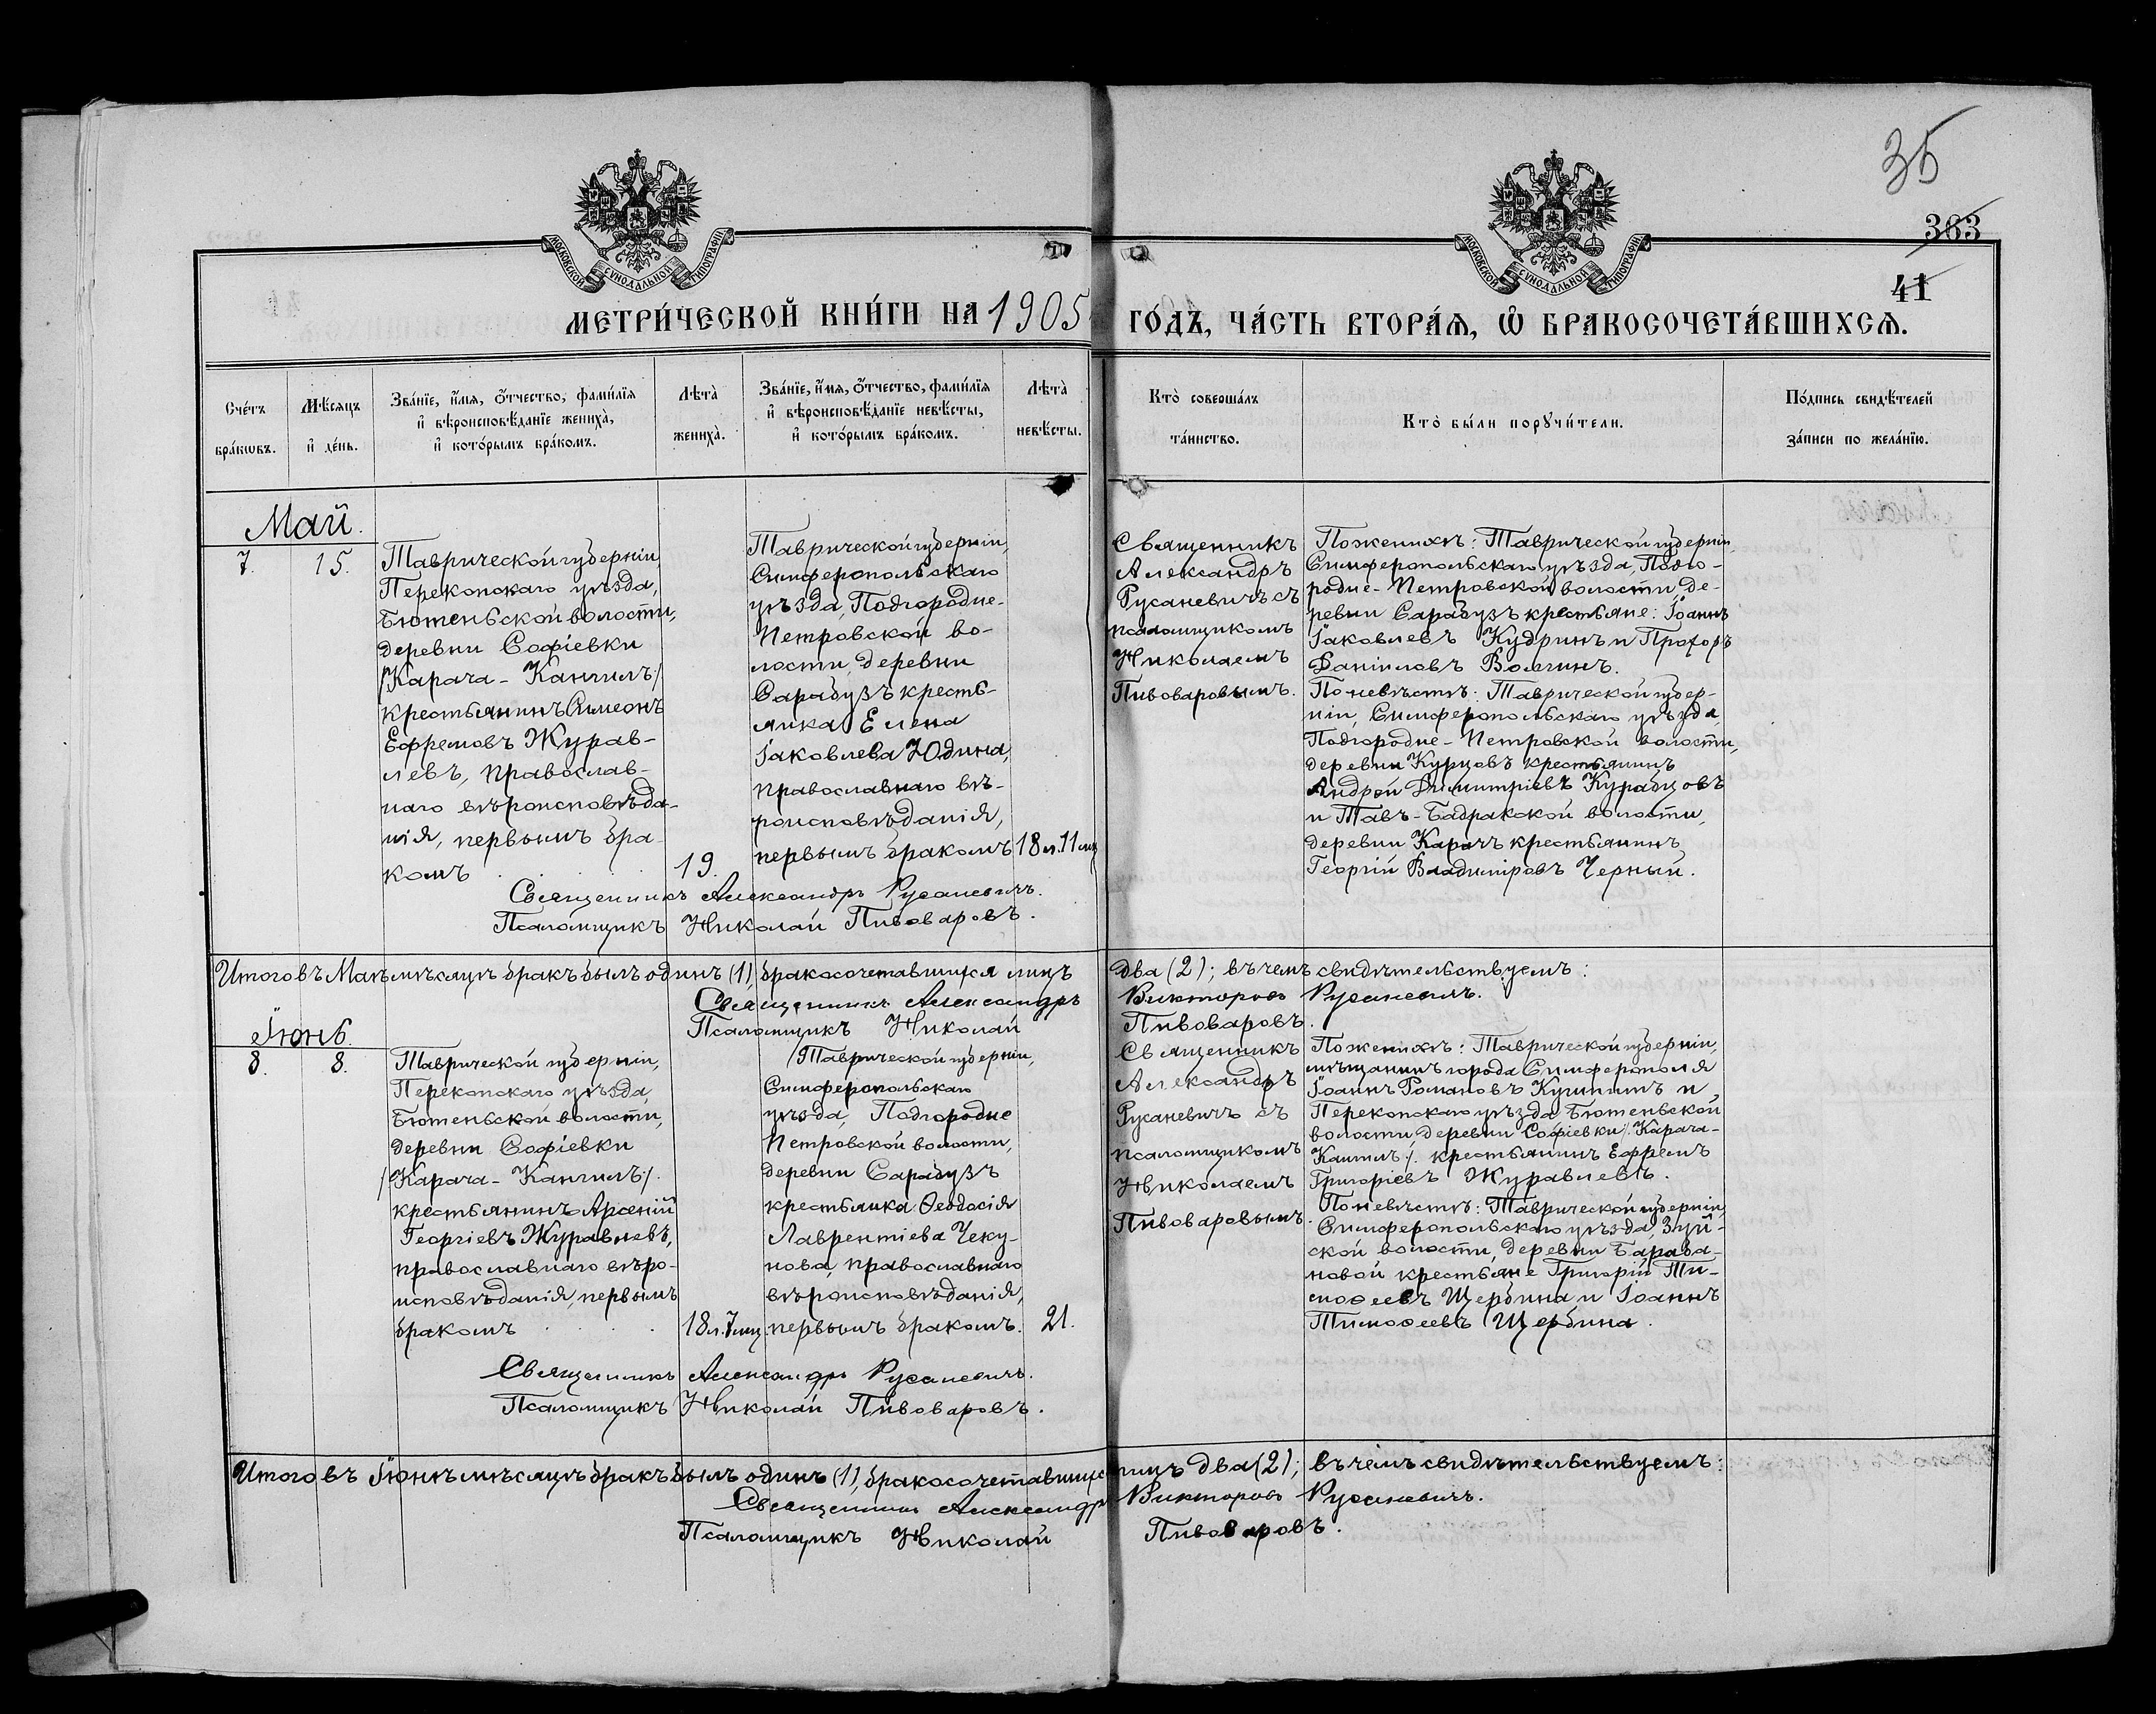 35
363
41
МОСКОВСКОЙ СѴНОДАЛЬНОЙ ТИПОГРАФІИ
МОСКОВСКОЙ СѴНОДАЛЬНОЙ ТИПОГРАФІИ
МЕТРИ́ЧЕСКОЙ КНИ́ГИ НА 1905 ГО́ДЪ, ЧА́СТЬ ВТОРА́Я, Ѡ҆ БРАКОСОЧЕТА́ВШИХСѦ.
Сче́тъ
бра́кѡвъ.
Мѣ́сяцъ
и҆ де́нь.
Зва́нїе, и҆́мя, ѻ҆́тчество, фами́лїя
и҆ вѣроисповѣ́данїе жениха̀,
и҆ кото́рымъ бра́комъ.
Лѣта̀
жениха̀.
Зва́нїе, и҆́мя, ѻ҆́тчество, фами́лїя
и҆ вѣроисповѣ́данїе невѣ́сты,
и҆ кото́рымъ бра́комъ.
Лѣта̀
невѣ́сты.
Кто̀ соверша́лъ
та́инство.
Кто̀ бы́ли поручи́тели.
По́дпись свидѣ́телей
за́писи по жела́нїю.
Май.
7.
15.
Таврической губерніи,
Перекопскаго уѣзда,
Бютеньской волости,
деревни Софіевки
/Карача-Кангилъ/
крестьянинъ Симеонъ
Ефремовъ Журав-
левъ, православ-
наго вѣроисповѣда-
нія, первымъ бра-
комъ
19.
Таврической губерніи,
Симферопольскаго
уѣзда, Подгородне-
Петровской во-
лости, деревни
Сарабузъ кресть-
янка Елена
Іаковлева Юдина,
православнаго вѣ-
роисповѣданія,
первымъ бракомъ
18 л. 11 мц
Священникъ
Александръ
Русаневичъ съ
псаломщикомъ
Николаемъ
Пивоваровымъ.
По женихѣ: Таврической губерніи,
Симферопольскаго уѣзда, Подго-
родне-Петровской волости, де-
ревни Сарабузъ крестьяне: Іоаннъ
Іаковлевъ Кудринъ и Прохоръ
Даніиловъ Волгинъ.
По невѣстѣ: Таврической губер-
ніи, Симферопольскаго уѣзда,
Подгородне-Петровской волости,
деревни Курцовъ крестьянинъ
Андрей Димитріевъ Курабцовъ
и Тавъ-Бадракской волости,
деревни Карачъ крестьянинъ
Георгій Владиміровъ Черный.
Священникъ Александръ Русаневичъ.
Псаломщикъ Николай Пивоваровъ.
Итого въ Маѣ мѣсяцѣ бракъ былъ одинъ (1), бракосочетавшихся лицъ два (2); въ чемъ свидѣтельствуемъ:
Священникъ Александръ Викторовъ Русаневичъ.
Псаломщикъ Николай Пивоваровъ.
Іюнь.
8.
8.
Таврической губерніи,
Перекопскаго уѣзда,
Бютеньской волости,
деревни Софіевки
/Карача-Кангилъ/.
крестьянинъ Арсеній
Георгіевъ Журавлевъ,
православнаго вѣро-
исповѣданія, первымъ
бракомъ
18 л. 7 мц.
Таврической губерніи,
Симферопольскаго
уѣзда, Подгородне
Петровской волости,
деревни Сарабузъ
крестьянка Ѳеодосія
Лаврентіева Чеку-
нова, православнаго
вѣроисповѣданія,
первымъ бракомъ.
21.
Священникъ
Александръ
Русаневичъ съ
псаломщикомъ
Николаемъ
Пивоваровымъ.
По женихѣ: Таврической губерніи,
мѣщанинъ города Симферополя
Іоаннъ Романовъ Купинъ и
Перекопскаго уѣзда, Бютеньской
волости, деревни Софіевки /Карача-
Кангилъ/. крестьянинъ Ефремъ
Григоріевъ Журавлевъ.
По невѣстѣ: Таврической губерніи,
Симферопольскаго уѣзда, Зуй-
ской волости, деревни Бараба-
новой крестьяне Григорій Ти-
моѳеевъ Щербина и Іоаннъ
Тимоѳеевъ Щербина.
Священникъ Александръ Русаневичъ.
Псаломщикъ Николай Пивоваровъ.
Итого въ Іюнѣ мѣсяцѣ бракъ былъ одинъ (1), бракосочетавшихся лицъ два (2); въ чемъ свидѣтельствуемъ:
Священникъ Александръ Викторовъ Русаневичъ.
Псаломщикъ Николай Пивоваровъ.